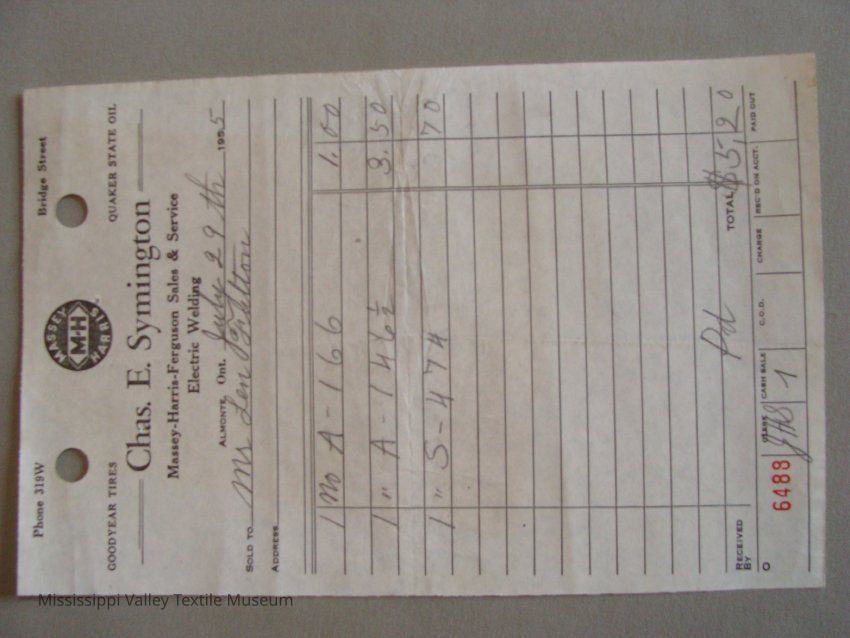 Phone 319W MASSEY M-H HARRIS Bridge Street
GOODYEAR TIRES QUAKER STATE OIL
Chas. E. Symington
Massey-Harris-Ferguson Sales & Service
Electric Welding
ALMONTE, Ont. July 29th 1955
SOLD TO Mr Len
ADDRESS
1 No A-166 1.00
1 " A-146½ 3.50
1 " S-474 70
RECEIVED BY Pd TOTAL $5,20
O 6488 CLERK CASH SALE C.O.D. CHARGE REC'D ON ACCT. PAID OUT
1
Mississippi Valley Textile Museum